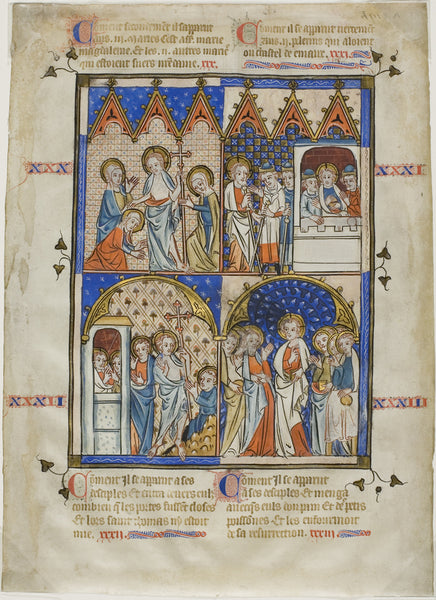 Coment secondement il sapparut
aus .iii. maries cest ass. marie
magdaleine. Et les .ii. autres marie
qui estoient suers xxx.
Coment il se apparut
aus .ii. pelerins qui aloient
ou chastel de xxxi.
XXX
XXXI
XXXII
XXXIII
Coment Il se apparut a ses
desciples Et entra
combien q les portes fussent closes
Et lors saint thomas ni estoit
mie. xxxii.
Coment Il se apparut
a ses desciples Et menga
pain Et de petis
poissones. Et les enformoit
de sa resurrection. xxxiii